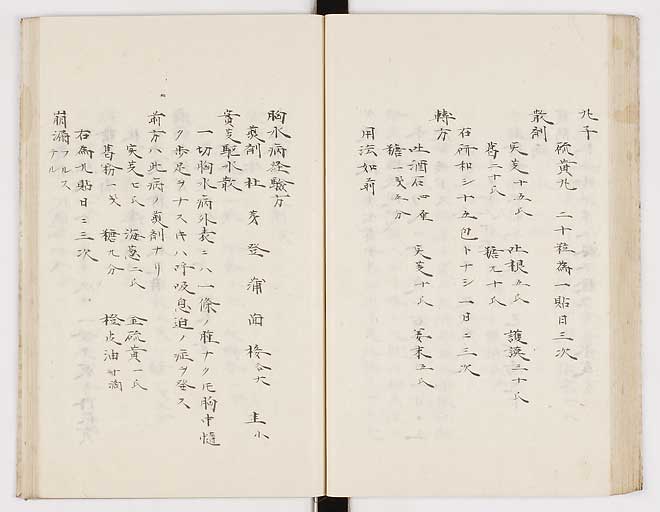 丸子
硫黄丸 二十粒為一貼日三次
散剤
実芰十五氏 吐根五氏 護謨三十氏
舊二十氏 糖九十氏
右研和シ十五包トナシ一日ニ三次
轉方
吐酒石 実芰十氏 姜末五氏
糖一戔五分
用法如前
胸水病経験方
煎剤 杜 麦 登 蒲 茴 桂 各大 圭小
實芰駆水散
一切胸水病外表ニハ一條ノ腫ナク凡胸中
ク歩足ヲナスキハ呼吸息迫ノ症ヲ発ス
前方ハ此病ノ煎剤ナリ
実芰七氏 海葱二氏 金硫黄一氏
舊粉一戔 糖九分 橙皮油 滴
右為九貼日ニ三次
崩漏